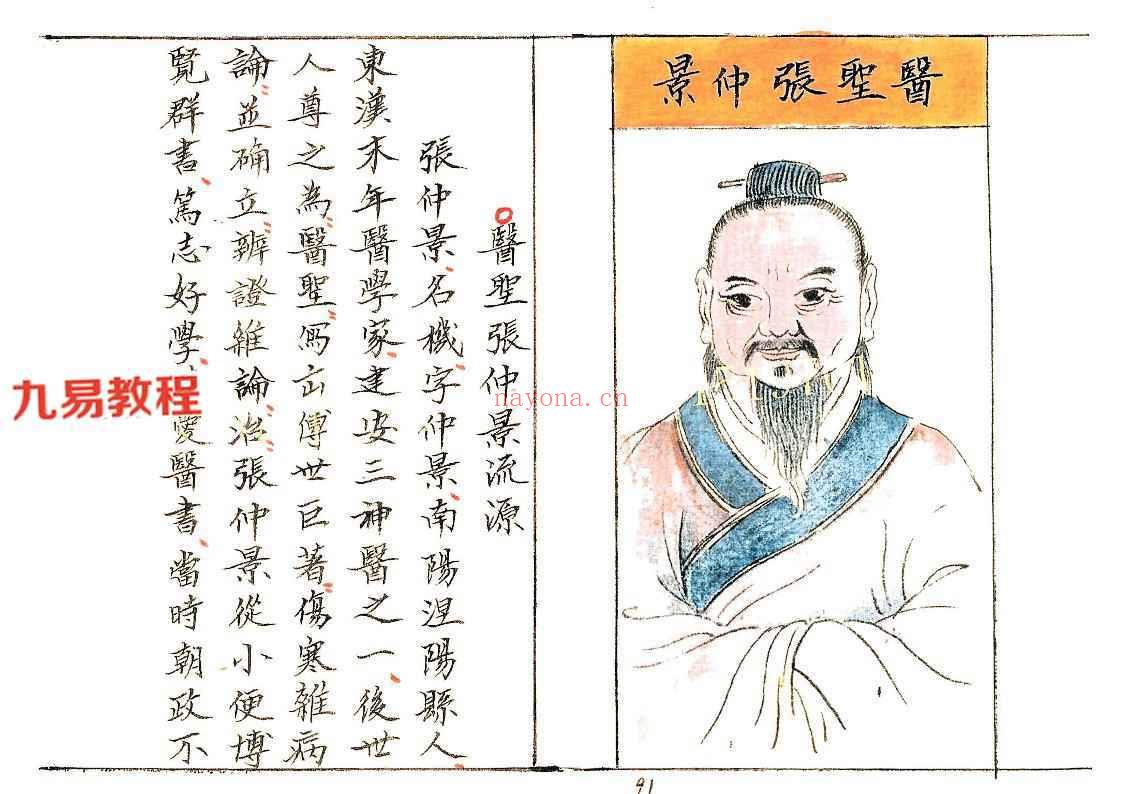 醫聖張仲景
醫聖張仲景流源
張仲景、名機、字仲景、南陽涅陽縣人、
東漢末年醫學家、建安三神醫之一、後世
人尊之為醫聖、寫出傳世巨著、傷寒雜病
論、並确立、辨證維論、治、張仲景從小便博
覽群書、篤志好學、愛醫書、當時朝政不
九易教程
nayona.cn
91